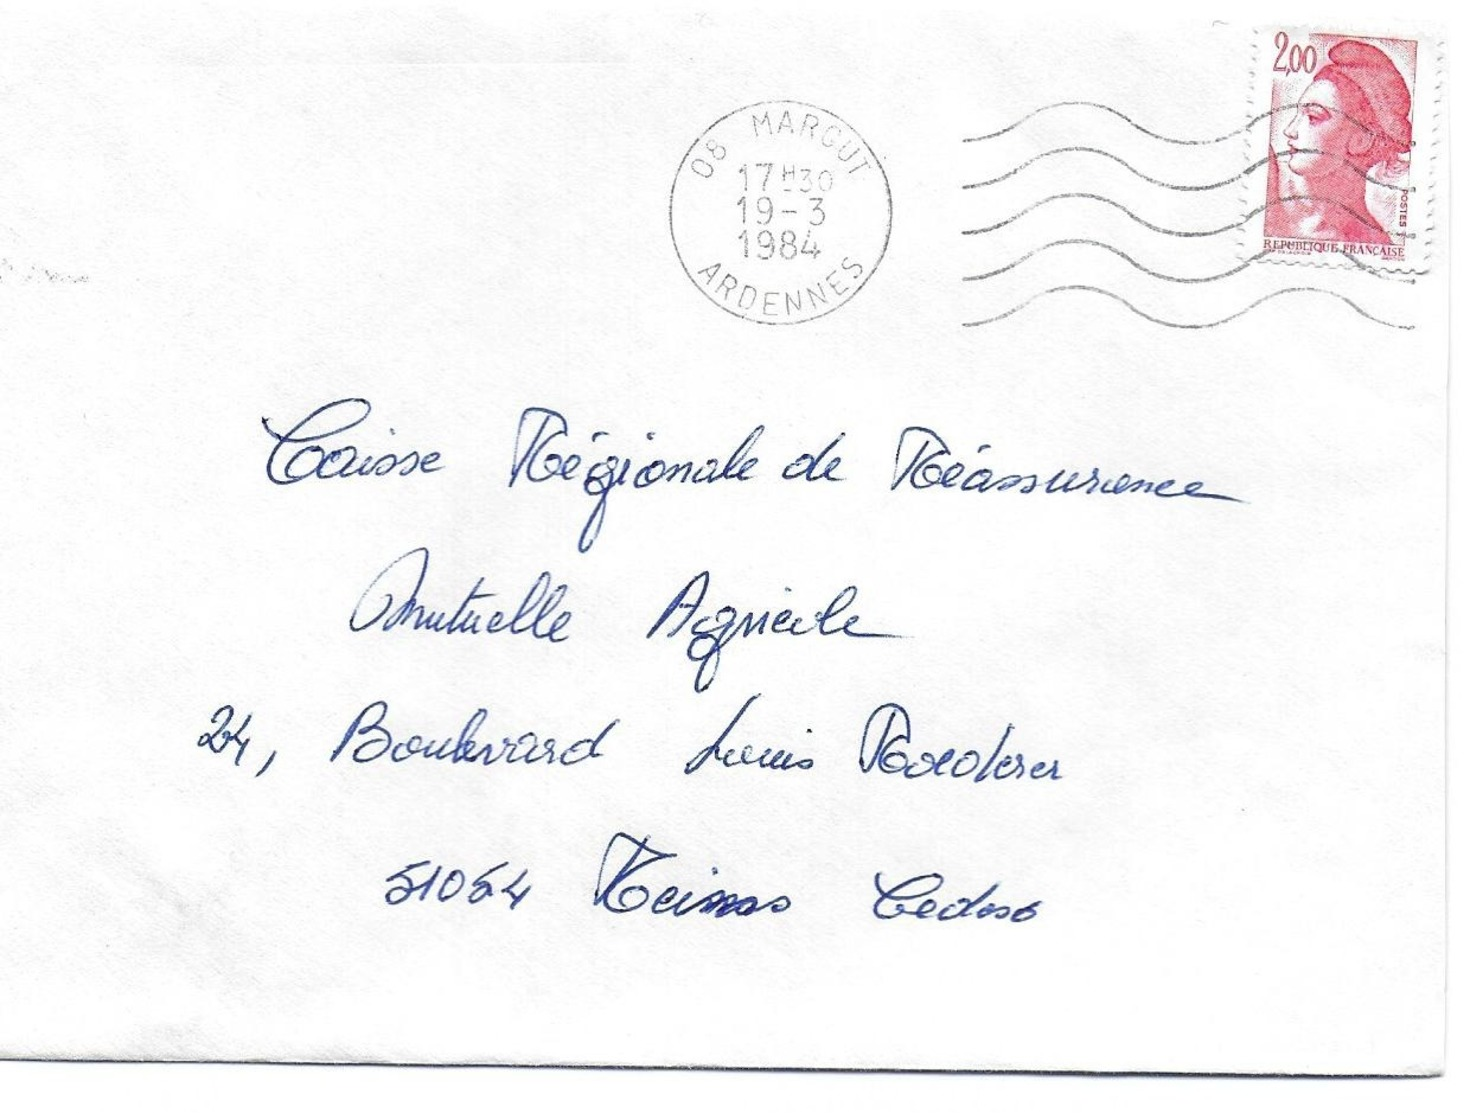 2,00
08 MARGUT
17H30
19-3
1984
ARDENNES
POSTES
REPUBLIQUE FRANÇAISE
Caisse Régionale de Réassurance
Mutuelle Agricole
24, Boulevard Louis Roederer
51054 Reims Cedex